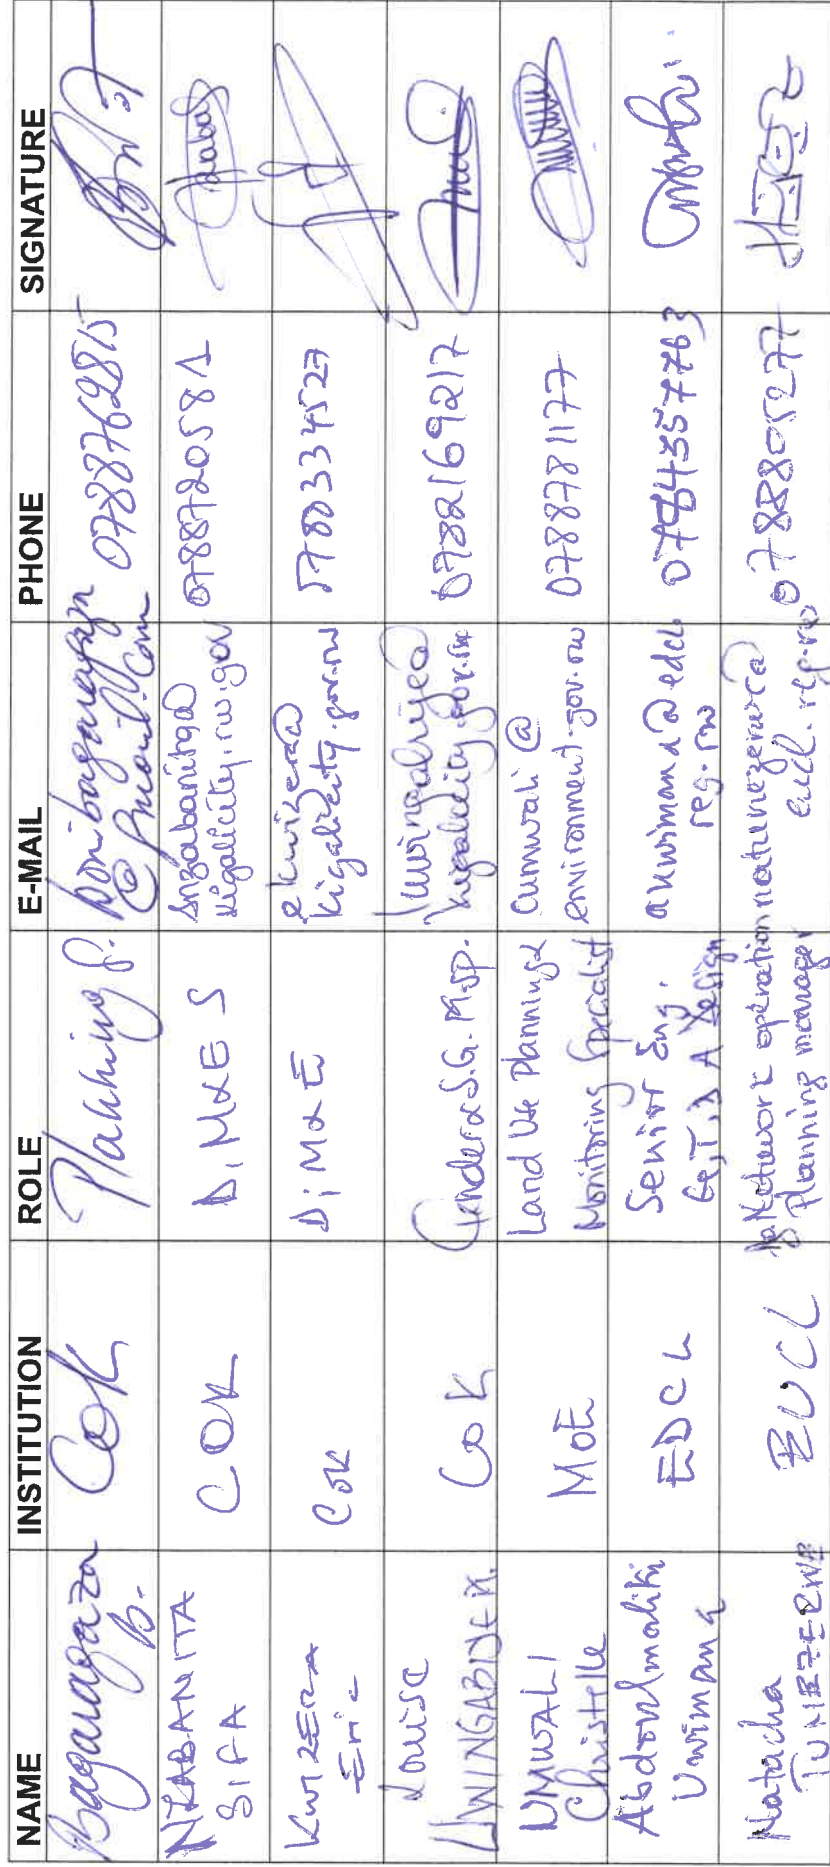 NAME INSTITUTION ROLE E-MAIL PHONE SIGNATURE
Bagaragaza B. COK Planning S. bonibagaragaza @gmail.com 0788762815
NZABANITA SIFA COK D, M&ES snzabanita@ kigalicity.rw.gov 0788720581
KWIZERA Eric COK D; M&E ekwizera@ kigalicity.gov.rw 0788334527
Louise UWINGABIYE M. COK Gender & S.G. M.sp. luwingabiye@ kigalicity.gov.rw 0782169217
UMWALI Christelle MoE Land Use Planning & Monitoring Specialist cumwali @ environment.gov.rw 0788781177
Abdoulmaliki Uwimana EDCL Senior Eng. Design auwimana@edcl reg.rw 0784357763
Natacha TUNEZERWE EUCL Network operation Planning manager natunezerwe@ eucl.reg.rw 0788805277